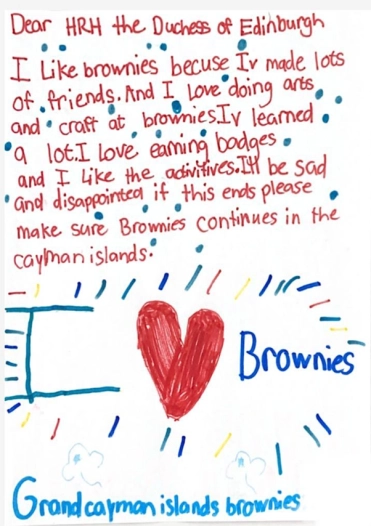 Dear HRH the Duchess of Edinburgh
I Like brownies becuse Iv made lots
of friends. And I Love doing arts
and craft at brownies. Iv learned
a lot. I love earning badges
and I like the adivitives. Ill be sad
and disappointed if this ends please
make sure Brownies continues in the
cayman islands.
I
Brownies
Grand cayman islands brownies